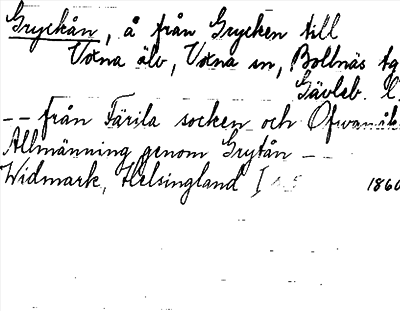 Gryckån, å från Grycken till
Voxna älv, Voxna sn, Bollnäs tg
Gävleb l.
-- från Färila socken och Ofvanåk
Allmänning genom Grytån --
Widmark, Helsingland I 1860